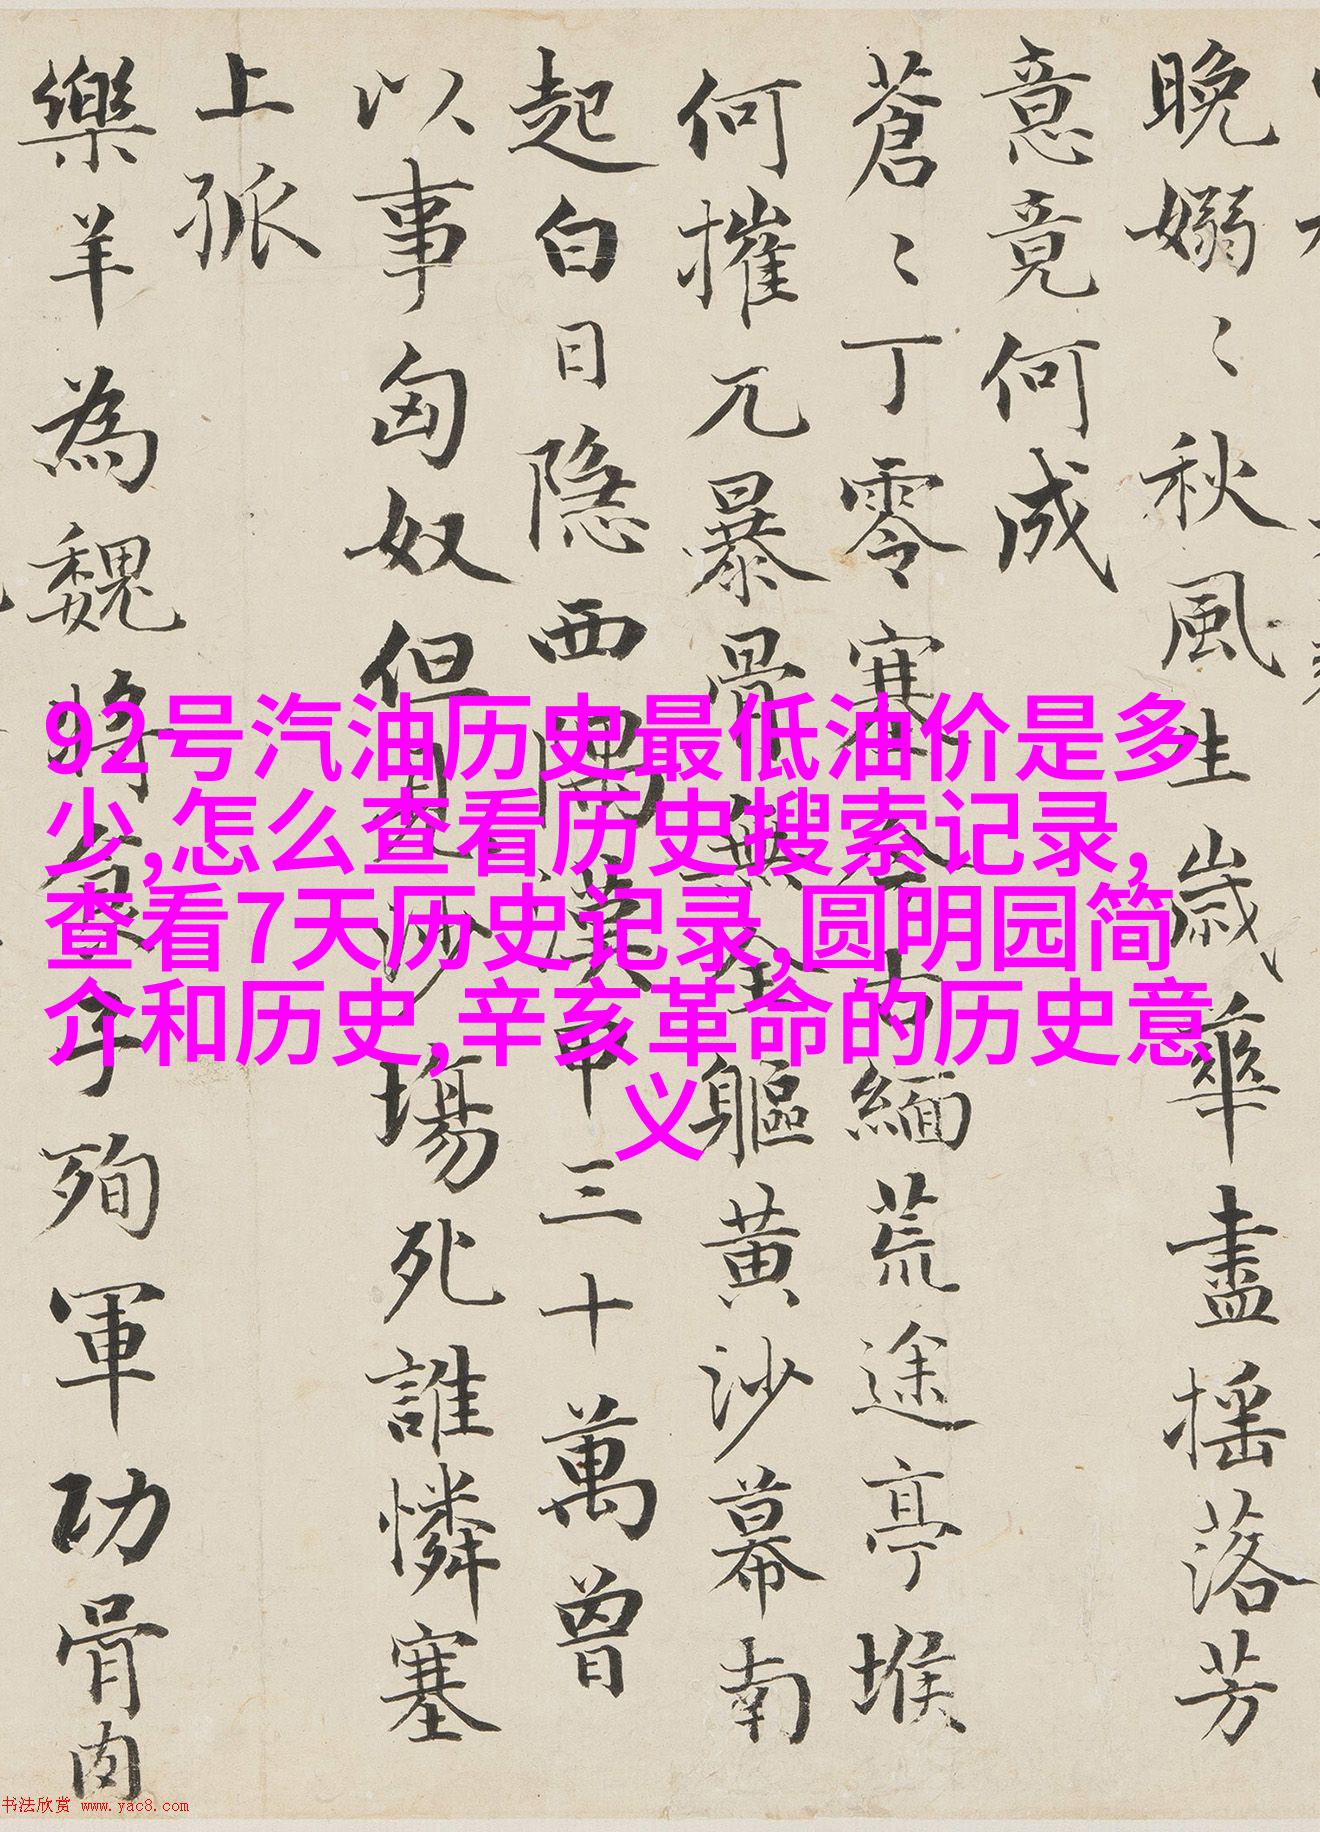 晚嫋〻秋風生歲華盡搖落芳
意竟何成
蒼〻丁零塞今古緬荒途亭堠
何摧兀暴骨無全軀黄沙幕南
起白日隐西隅漢甲三十萬曾
以事匈奴但見沙場死誰憐塞
上孤
樂羊為魏將食子殉軍功骨肉
92号汽油历史最低油价是多
少,怎么查看历史搜索记录,
查看7天历史记录,圆明园简
介和历史,辛亥革命的历史意
义
书法欣赏 www.yac8.com